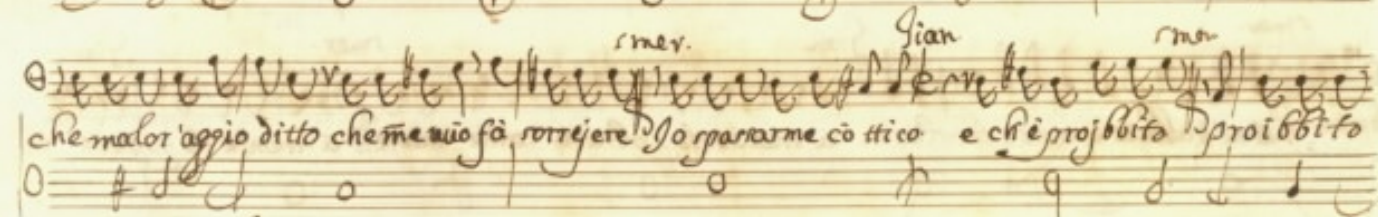 smer. Gian smer
che malor' aggio ditto che me vuo fà sorrejere Io sparrarme cò ttico e ch'è projbbito proibbito